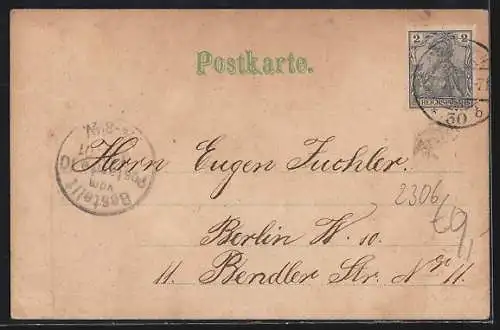 Postkarte.
2 2
REICHSPOST
30 b
Bestellt
vom
Postamte
Herrn Eugen Fuchler.
2306
Berlin W. 10.
11. Bendler Str. No 11.